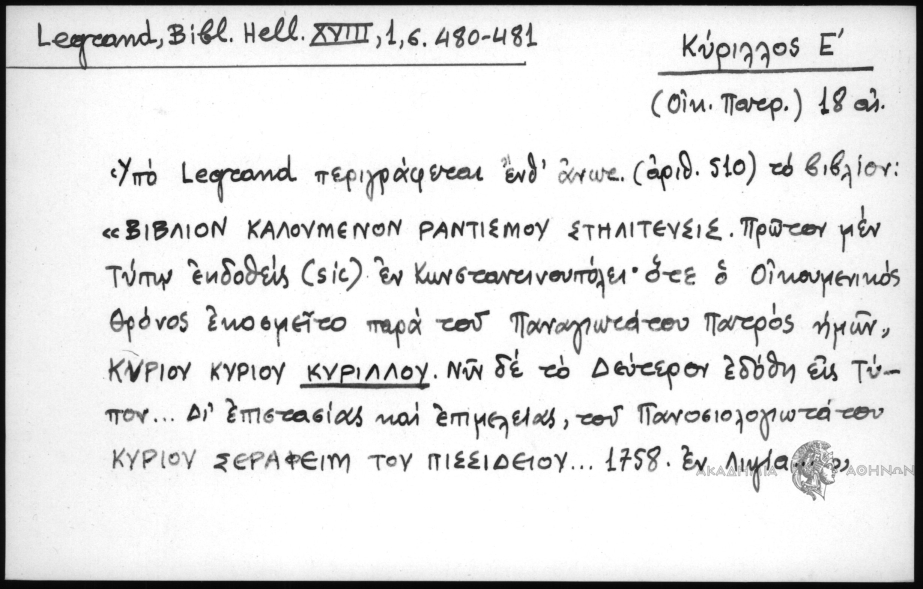 Legrand, Bibl. Hell. XVIII, 1, σ. 480-481
Κύριλλος Ε'
(Οἰκ. Πατρ.) 18 αἰ.
Ὑπό Legrand περιγράφεται ἔνθ' ἄνωτ. (ἀριθ. 510) τό βιβλίον:
«ΒΙΒΛΙΟΝ ΚΑΛΟΥΜΕΝΟΝ ΡΑΝΤΙΣΜΟΥ ΣΤΗΛΙΤΕΥΣΙΣ. Πρῶτον μέν
Τύπῳ ἐκδοθείς (sic) ἐν Κωνσταντινουπόλει· ὅτε ὁ Οἰκουμενικός
Θρόνος ἐκοσμεῖτο παρά τοῦ Παναγιωτάτου Πατρός ἡμῶν,
ΚΥΡΙΟΥ ΚΥΡΙΟΥ ΚΥΡΙΛΛΟΥ. Νῦν δέ τό Δεύτερον ἐδόθη εἰς Τύ-
πον... Δι' ἐπιστασίας καί ἐπιμελείας, τοῦ Πανοσιολογιωτάτου
ΚΥΡΙΟΥ ΣΕΡΑΦΕΙΜ ΤΟΥ ΠΙΣΣΙΔΕΙΟΥ... 1758. ἐν Λιψία...»
ΑΚΑΔΗΜΙΑ ΑΘΗΝΩΝ